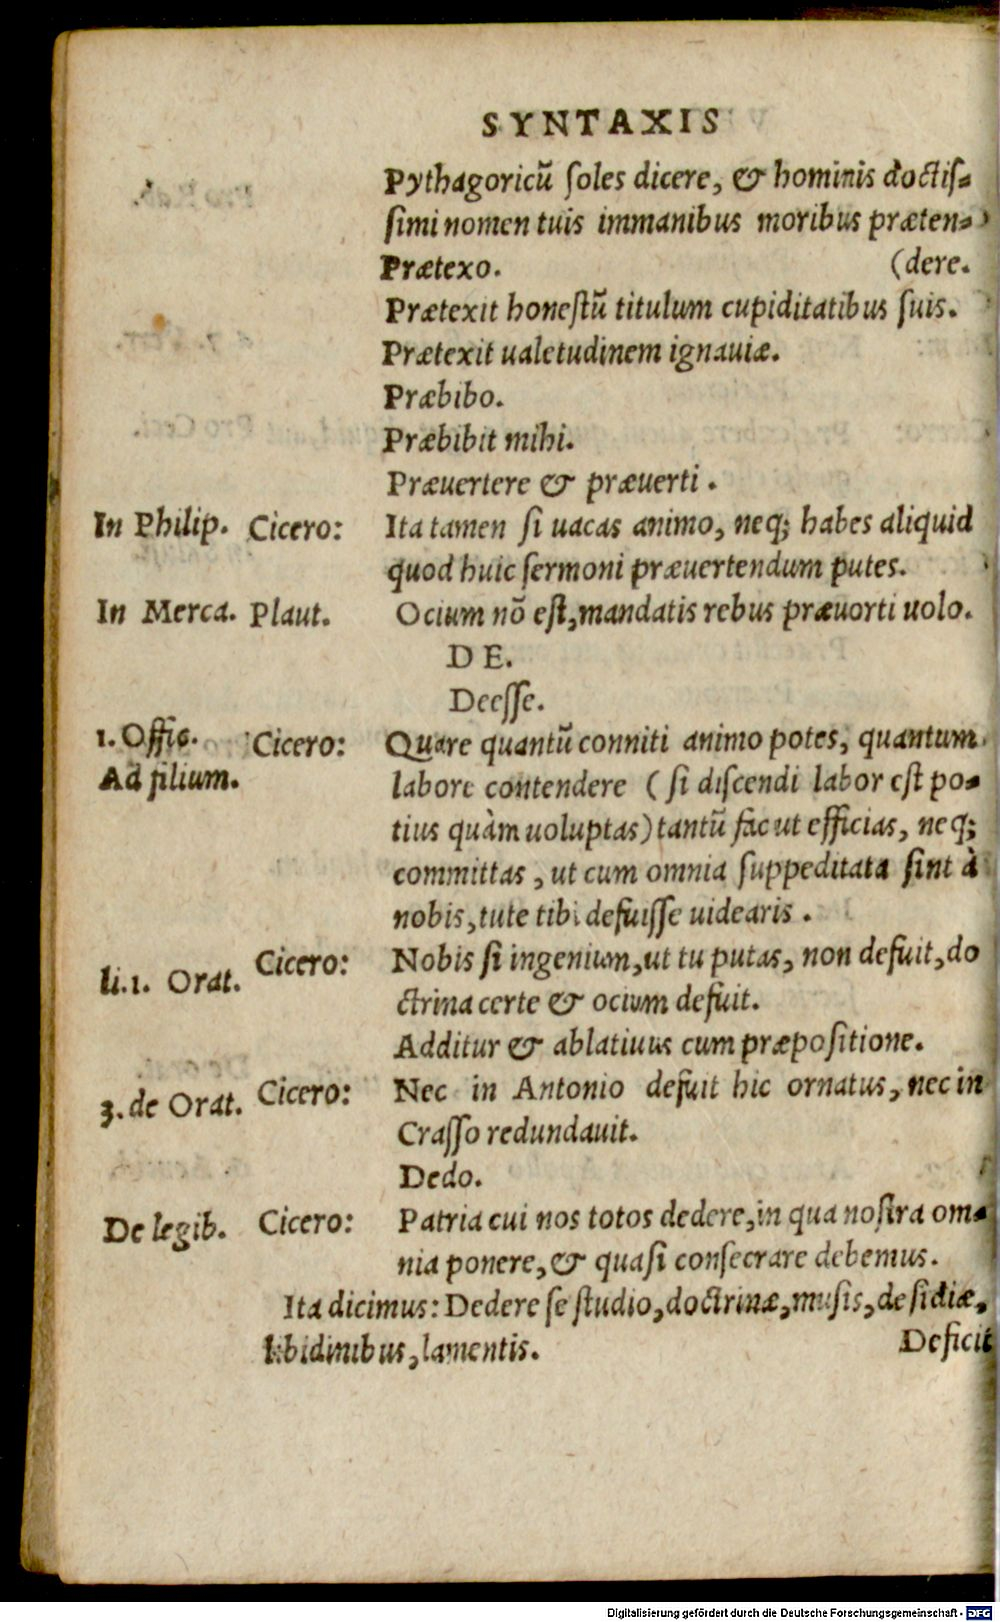 SYNTAXIS
Pythagoricũ ſoles dicere, & hominis doctiſ-
ſimi nomen tuis immanibus moribus præten-
Prætexo. (dere.
Prætexit honeſtũ titulum cupiditatibus ſuis.
Prætexit ualetudinem ignauiæ.
Præbibo.
Præbibit mihi.
Præuertere & præuerti.
In Philip. Cicero: Ita tamen ſi uacas animo, neq; habes aliquid
quod huic ſermoni præuertendum putes.
In Merca. Plaut. Ocium nõ eſt, mandatis rebus præuorti uolo.
DE.
Deeſſe.
1. Offic. Cicero: Quare quantũ conniti animo potes, quantum
Ad filium. labore contendere (ſi diſcendi labor eſt po-
tius quàm uoluptas) tantũ fac ut efficias, neq;
committas, ut cum omnia ſuppeditata ſint à
nobis, tute tibi defuiſſe uidearis.
li.1. Orat. Cicero: Nobis ſi ingenium, ut tu putas, non defuit, do
ctrina certe & ocium defuit.
Additur & ablatiuus cum præpoſitione.
3. de Orat. Cicero: Nec in Antonio defuit hic ornatus, nec in
Craſſo redundauit.
Dedo.
De legib. Cicero: Patria cui nos totos dedere, in qua noſtra om-
nia ponere, & quaſi conſecrare debemus.
Ita dicimus: Dedere ſe ſtudio, doctrinæ, muſis, deſidiæ,
libidinibus, lamentis. Deficit
Digitalisierung gefördert durch die Deutsche Forschungsgemeinschaft - DFG